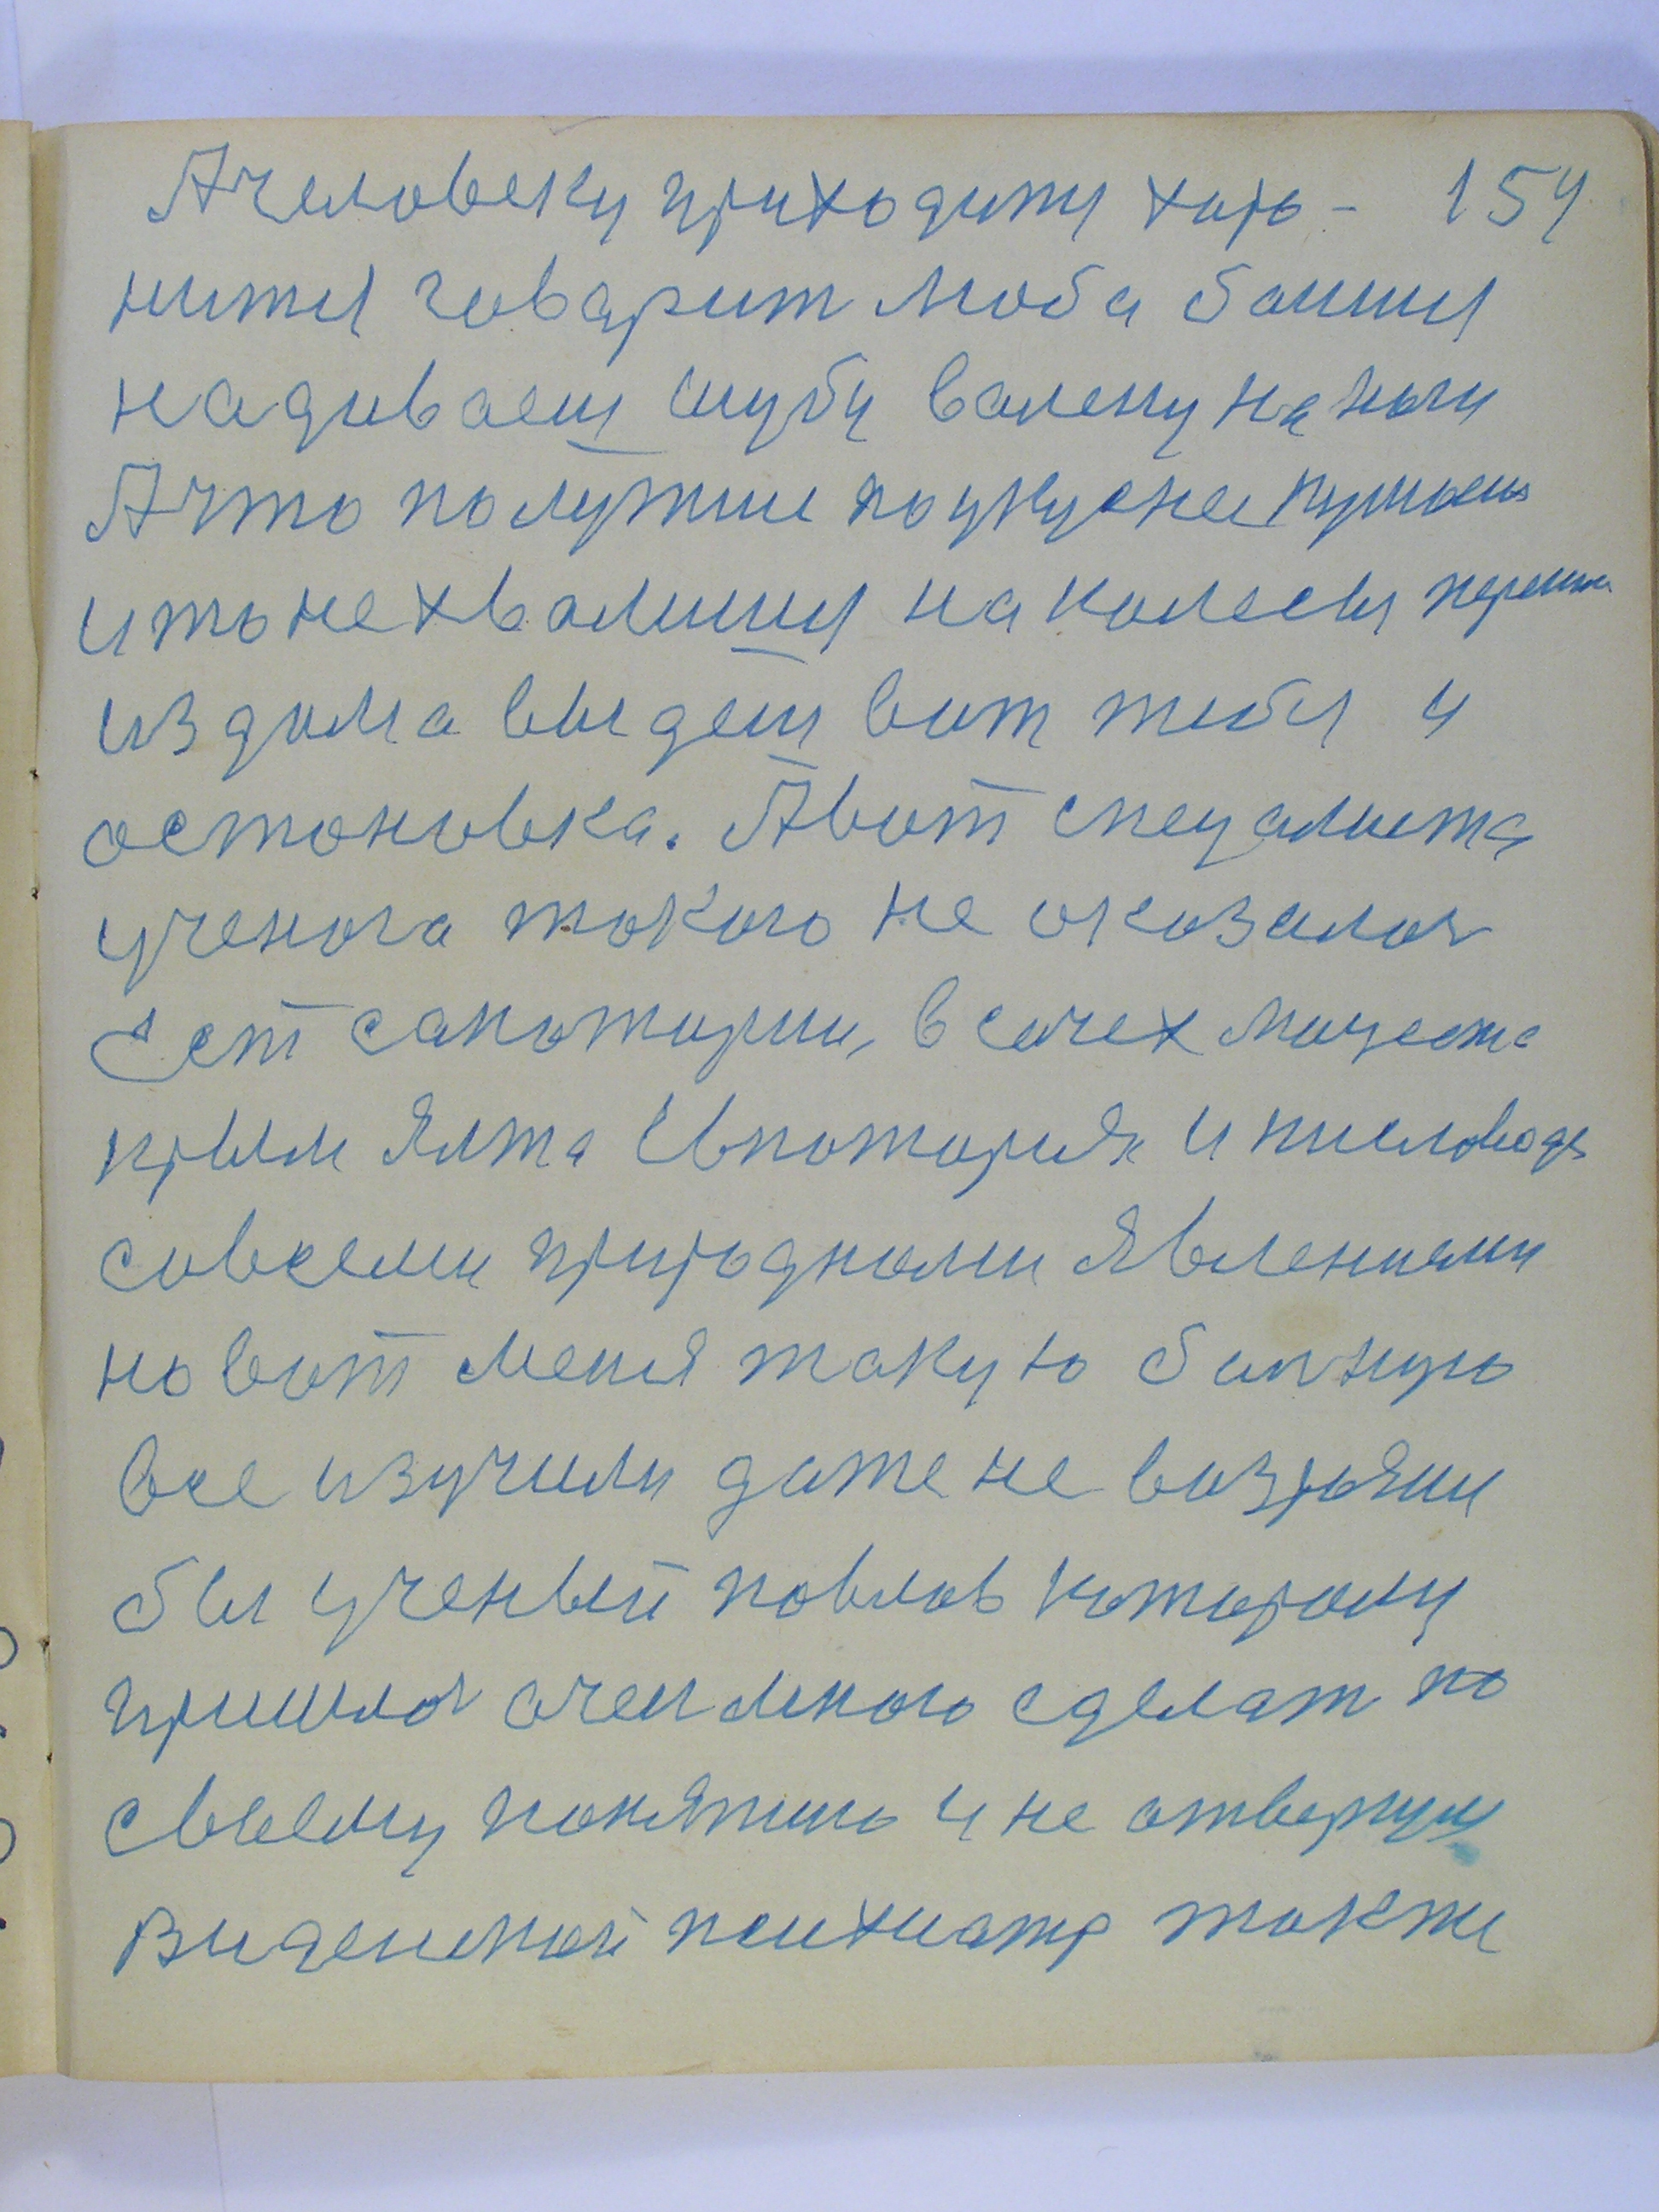 А человеку приходитя хоро- 154
нитя говарит люба боишя
надиваеш шубу валену на ноги
А что получше по уку не
и то не хвалишя на колесы
из дома выдеш вот тибя и
остоновка. А вот спецалиста
ученога токого не оказалос
Ест санотории, в сочех мацеста
крым Ялта Евпотория и писловодс
со всеми природноми явлениями
но вот меня такую болную
все изучили даже не возряли
был ученый повлов которому
пришлос очен много сделат по
своему понятию и не отвернули
Виденской психиатр токже